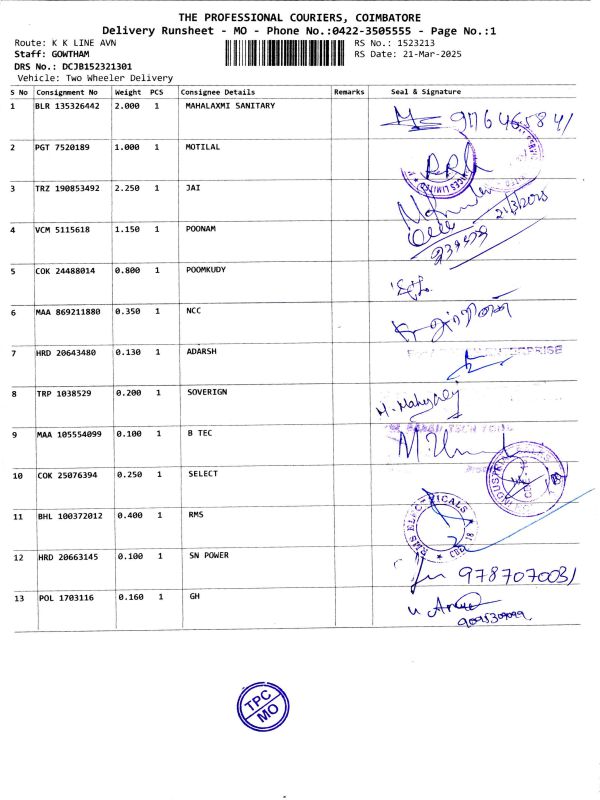 THE PROFESSIONAL COURIERS, COIMBATORE
Delivery Runsheet - MO - Phone No.:0422-3505555 - Page No.:1
Route: K K LINE AVN RS No.: 1523213
Staff: GOWTHAM RS Date: 21-Mar-2025
DRS No.: DCJB152321301
Vehicle: Two Wheeler Delivery
S No Consignment No Weight PCS Consignee Details Remarks Seal & Signature
1 BLR 135326442 2.000 1 MAHALAXMI SANITARY
2 PGT 7520189 1.000 1 MOTILAL
3 TRZ 190853492 2.250 1 JAI
21/3/2025
4 VCM 5115618 1.150 1 POONAM
5 COK 24488014 0.800 1 POOMKUDY
6 MAA 869211880 0.350 1 NCC
7 HRD 20643480 0.130 1 ADARSH
8 TRP 1038529 0.200 1 SOVERIGN
9 MAA 105554099 0.100 1 B TEC
10 COK 25076394 0.250 1 SELECT
11 BHL 100372012 0.400 1 RMS
RMS ELECTRICALS
12 HRD 20663145 0.100 1 SN POWER
9787070031
13 POL 1703116 0.160 1 GH
9095309099
TPC
MO